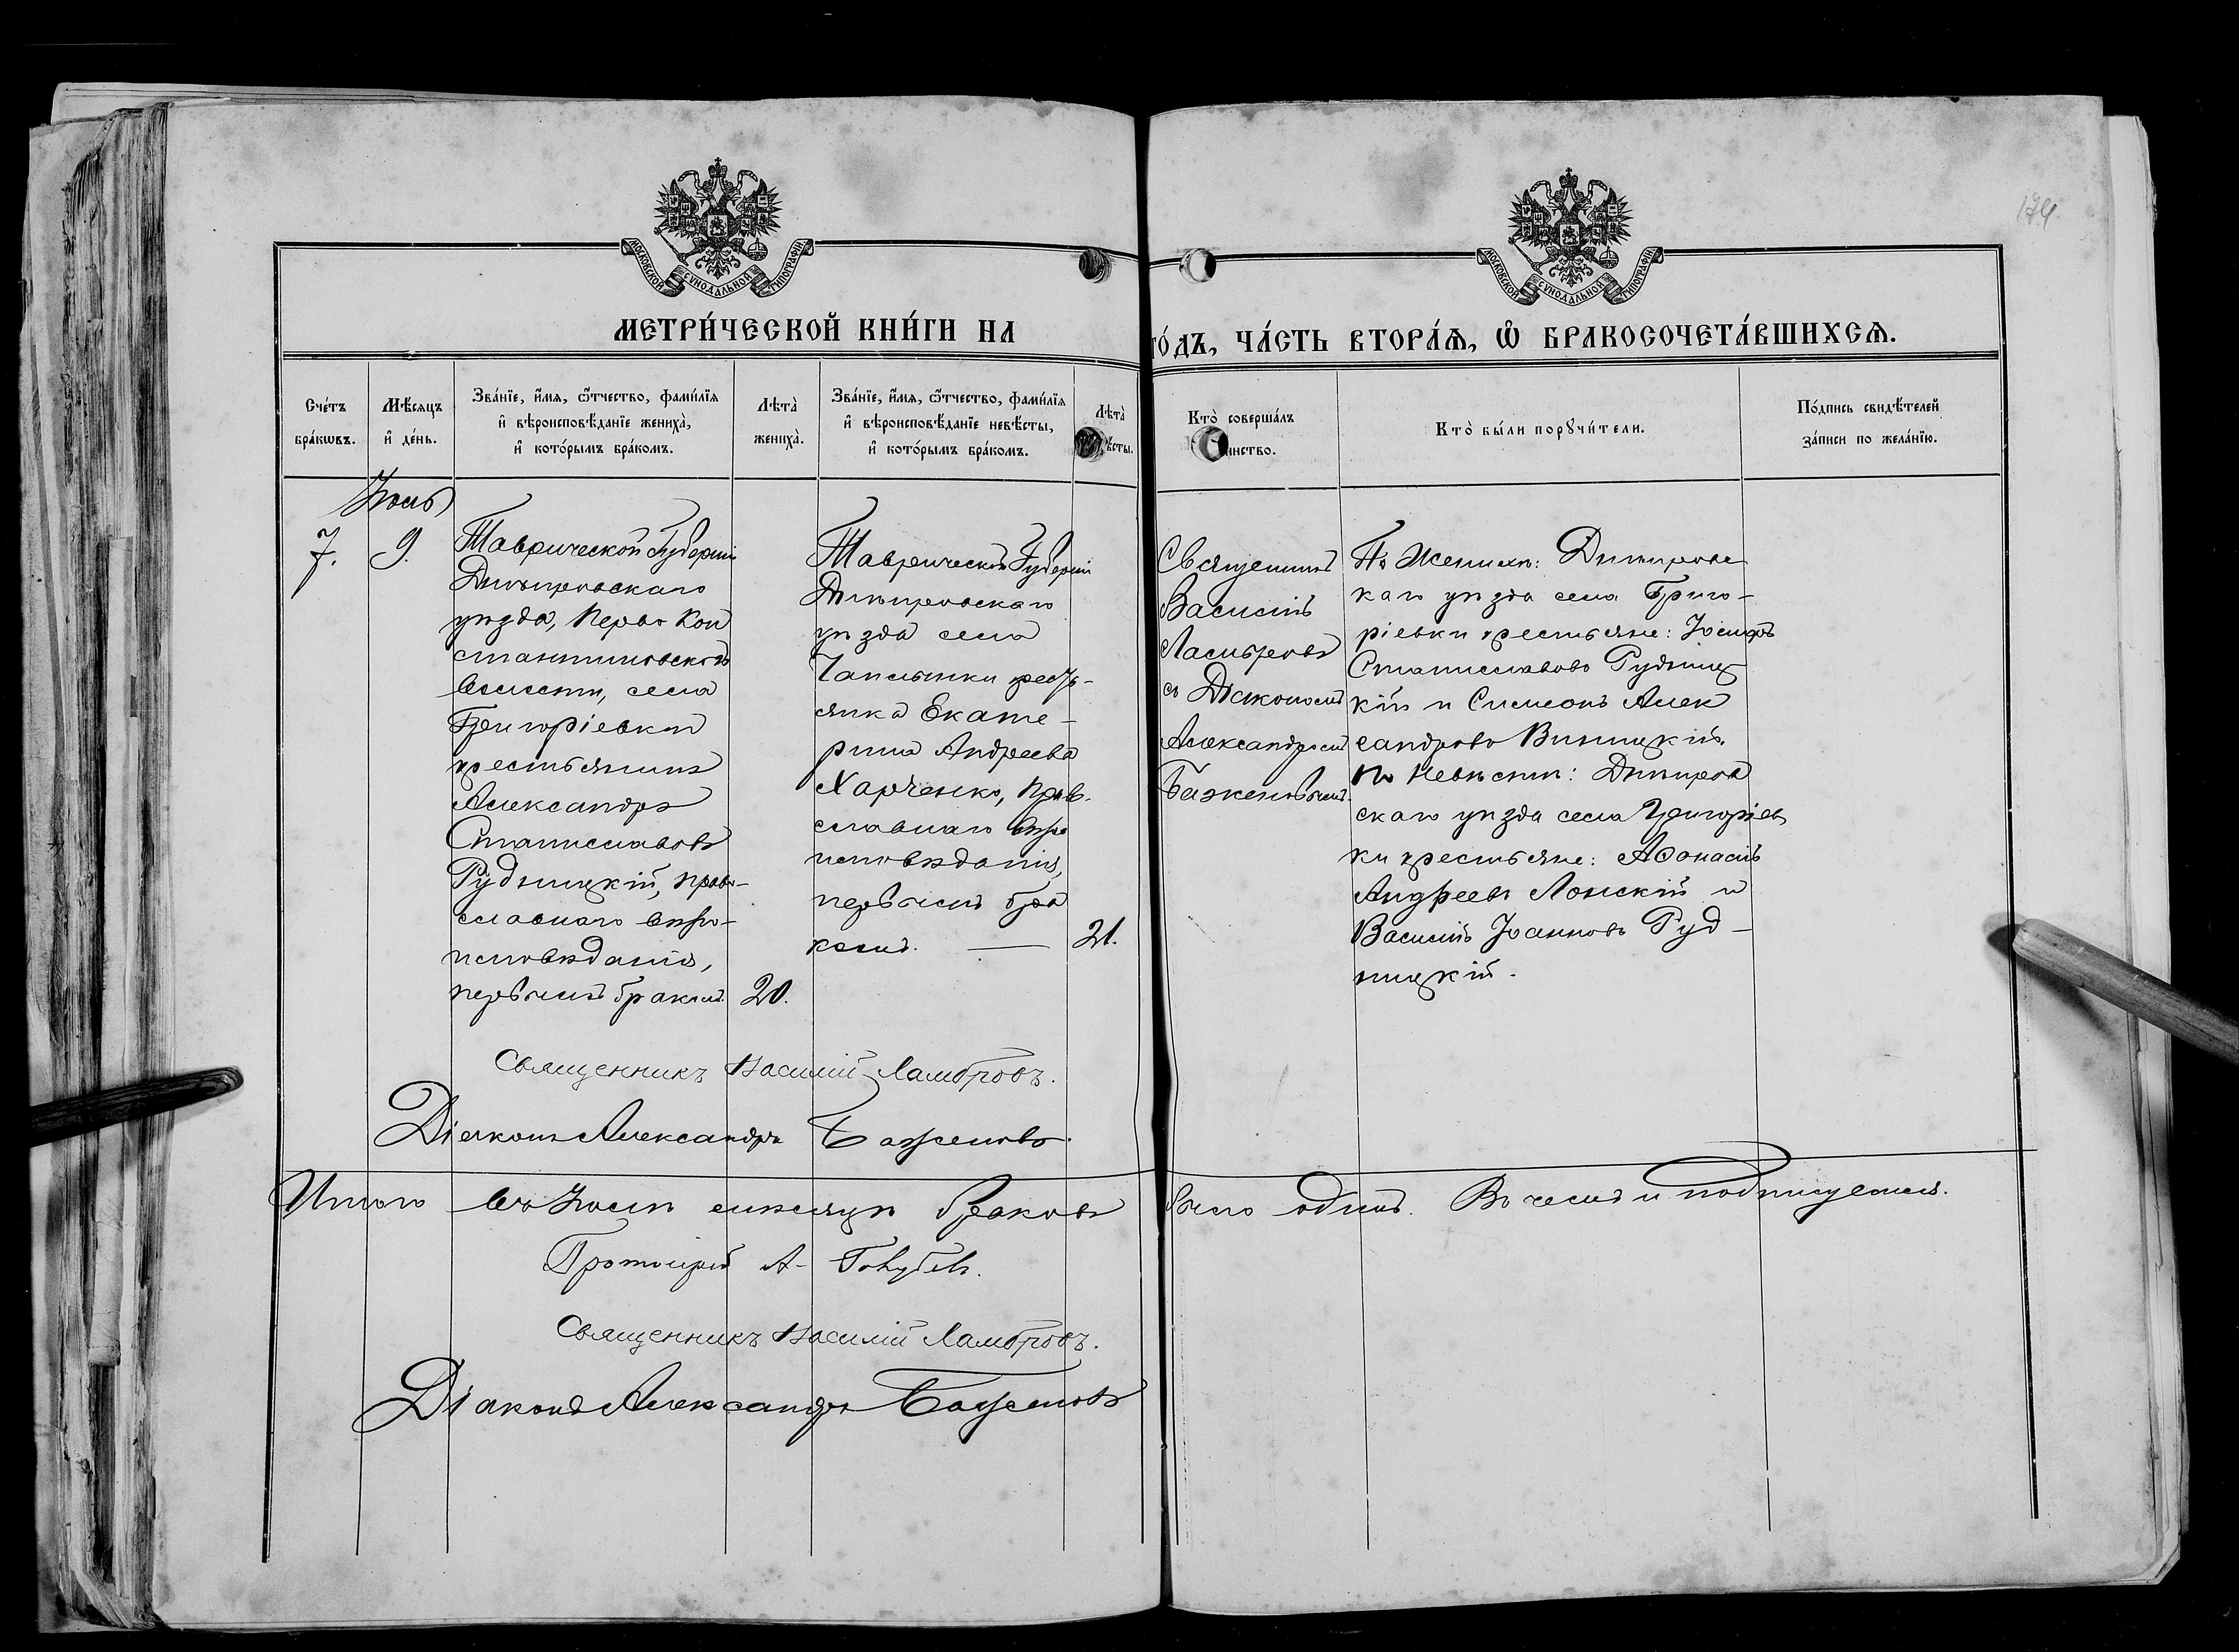 174
МОСКОВСКОЙ СѴНОДАЛЬНОЙ ТИПОГРАФІИ
МОСКОВСКОЙ СѴНОДАЛЬНОЙ ТИПОГРАФІИ
МЕТРИ́ЧЕСКОЙ КНИ́ГИ НА
ГО́ДЪ, ЧА́СТЬ ВТОРА́Ѧ, Ѽ БРАКОСОЧЕТА́ВШИХСѦ.
Сче́тъ
бра́кѡвъ.
Мѣ́сяцъ
и҆ де́нь.
Зва́нїе, и҆́мѧ, ѻ҆́тчество, фами́лїѧ
и҆ вѣроисповѣ́данїе жениха̀,
и҆ кото́рымъ бра́комъ.
Лѣта̀
жениха̀.
Зва́нїе, и҆́мѧ, ѻ҆́тчество, фами́лїѧ
и҆ вѣроисповѣ́данїе невѣ́сты,
и҆ кото́рымъ бра́комъ.
Лѣта̀
вѣсты.
Кто̀ соверша́лъ
таинство.
Кто̀ бы́ли порꙋчи́тели.
По́дпись свидѣ́телей
за́писи по жела́нїю.
Іюль
7.
9.
Таврической Губерніи
Днѣпровскаго
уѣзда, Перво Кон
стантиновской
волости, села
Григоріевки
крестьянинъ
Александръ
Станиславовъ
Рудницкій, право-
славнаго вѣро-
исповѣданія,
первымъ бракомъ
20.
Таврической Губерніи
Днѣпровскаго
уѣзда села
Чаплынки крест-
янка Екате-
рина Андреева
Харченко, прав.
славнаго вѣро
исповѣданія,
первымъ бра
комъ.
21.
Священникъ
Василій
Ламбровъ
съ Діакономъ
Александромъ
Баженовымъ.
По Женихѣ: Днѣпровс
каго уѣзда села Григо-
ріевки крестьяне: Іосифъ
Станиславовъ Рудниц
кій и Симеонъ Алек
сандровъ Винницкій.
По Невѣстѣ: Днѣпров
скаго уѣзда села Григоріев
ки крестьяне: Аѳонасій
Андреевъ Лонскій и
Василій Іоанновъ Руд-
ницкій.
Священникъ Василій Ламбровъ.
Діаконъ Александръ Баженовъ.
Итого въ Іюлѣ мѣсяцѣ браковъ было одинъ. Въ чемъ и подписуемся.
Протоіерей А. Голубевъ.
Священникъ Василій Ламбровъ.
Діаконъ Александръ Баженовъ